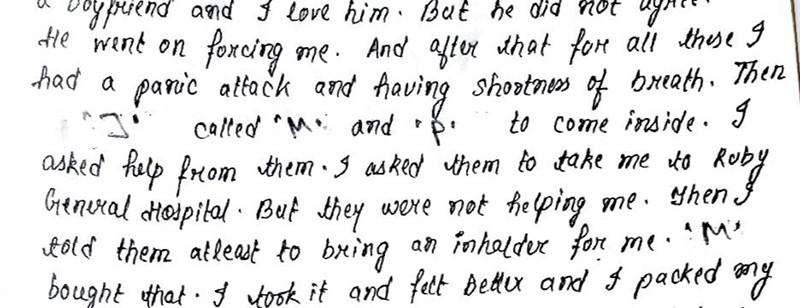 a boyfriend and I love him. But he did not agree.
He went on forcing me. And after that for all these I
had a panic attack and having shortness of breath. Then
"J" called "M" and "P" to come inside. I
asked help from them. I asked them to take me to Ruby
General Hospital. But they were not helping me. Then I
told them atleast to bring an inhalder for me. "M"
bought that. I took it and felt better and I packed my